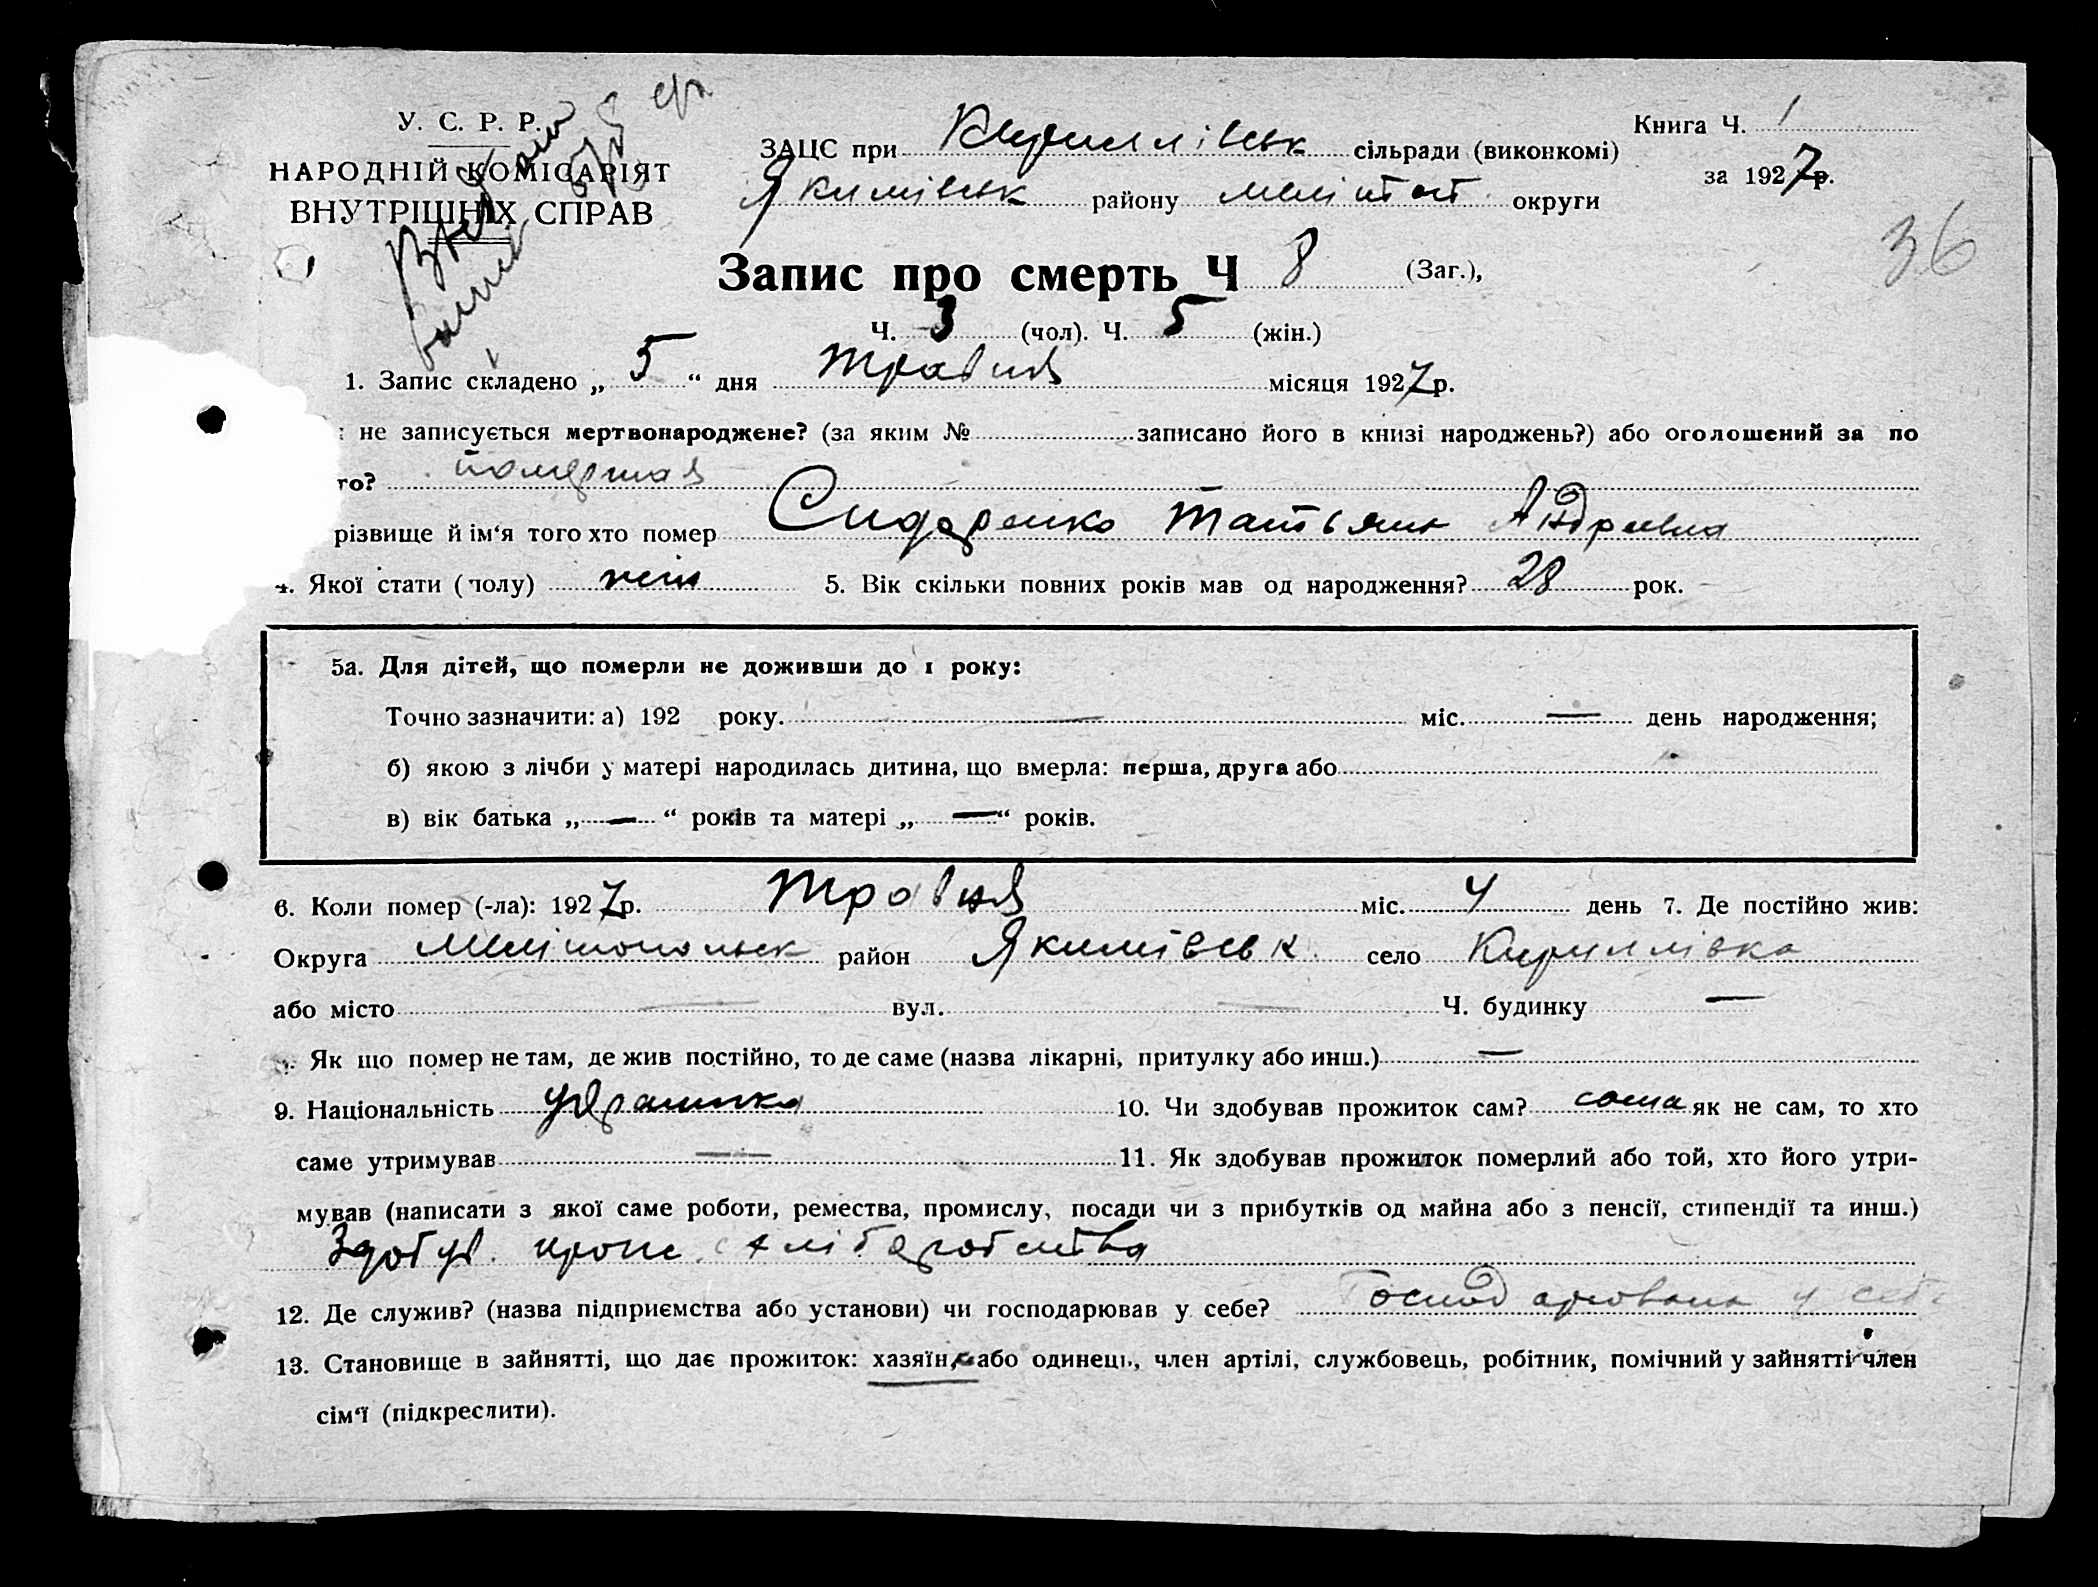 У. С. Р. Р.
НАРОДНІЙ КОМІСАРІЯТ
ВНУТРІШНІХ СПРАВ
ЗАЦС при Кириллівськ сільради (виконкомі)
Якимівськ району Мелітоп округи
Книга Ч. 1
за 1927 р.
36
Запис про смерть Ч 8 (Заг.),
Ч. 3 (чол). Ч. 5 (жін.)
1. Запис складено „ 5 “ дня травня місяця 1927 р.
не записується мертвонароджене? (за яким № записано його в книзі народжень?) або оголошений за по
го? помершая
різвище й ім‘я того хто помер Сидаренко Татьяна Андреевна
4. Якої стати (полу) жін 5. Вік скільки повних років мав од народження? 28 рок.
5а. Для дітей, що померли не доживши до 1 року:
Точно зазначити: а) 192 року. — міс. — день народження;
б) якою з лічби у матері народилась дитина, що вмерла: перша, друга або
в) вік батька „ — “ років та матері „ — “ років.
6. Коли помер (-ла): 1927 р. травня міс. 4 день 7. Де постійно жив:
Округа Мелітопольськ район Якимівськ село Кириллівка
або місто — вул. — Ч. будинку —
Як що помер не там, де жив постійно, то де саме (назва лікарні, притулку або инш.) —
9. Національність украинка 10. Чи здобував прожиток сам? сама як не сам, то хто
саме утримував — 11. Як здобував прожиток померлий або той, хто його утри-
мував (написати з якої саме роботи, ремества, промислу, посади чи з прибутків од майна або з пенсії, стипендії та инш.)
Здобув. прож. с хліборобства
12. Де служив? (назва підприємства або установи) чи господарював у себе? Господарювала у себе
13. Становище в зайнятті, що дає прожиток: хазяїн, або одинець, член артілі, службовець, робітник, помічний у зайнятті член
сім‘ї (підкреслити).